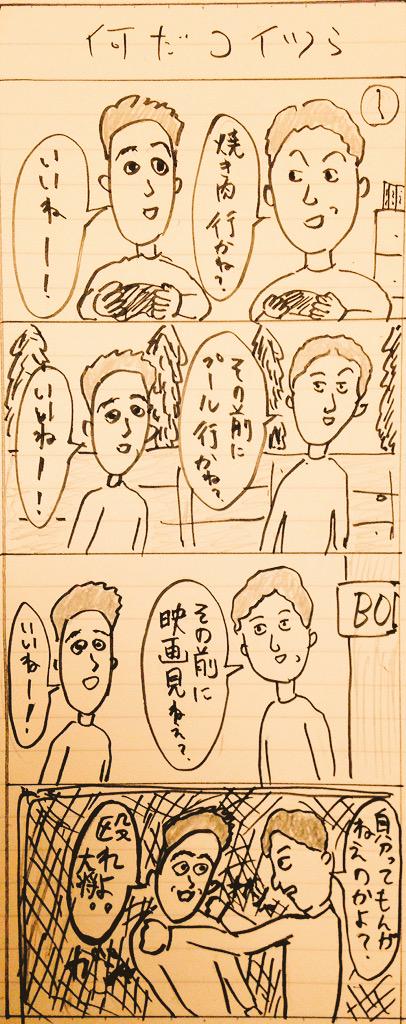 何だコイツら
1
焼き肉行かね?
いいねー!!
その前に
プール行かね?
いいねー!!
BO
その前に
映画見ねえ?
いいねー!
自分ってもんが
ねえのかよ?
殴れよ
大将!!